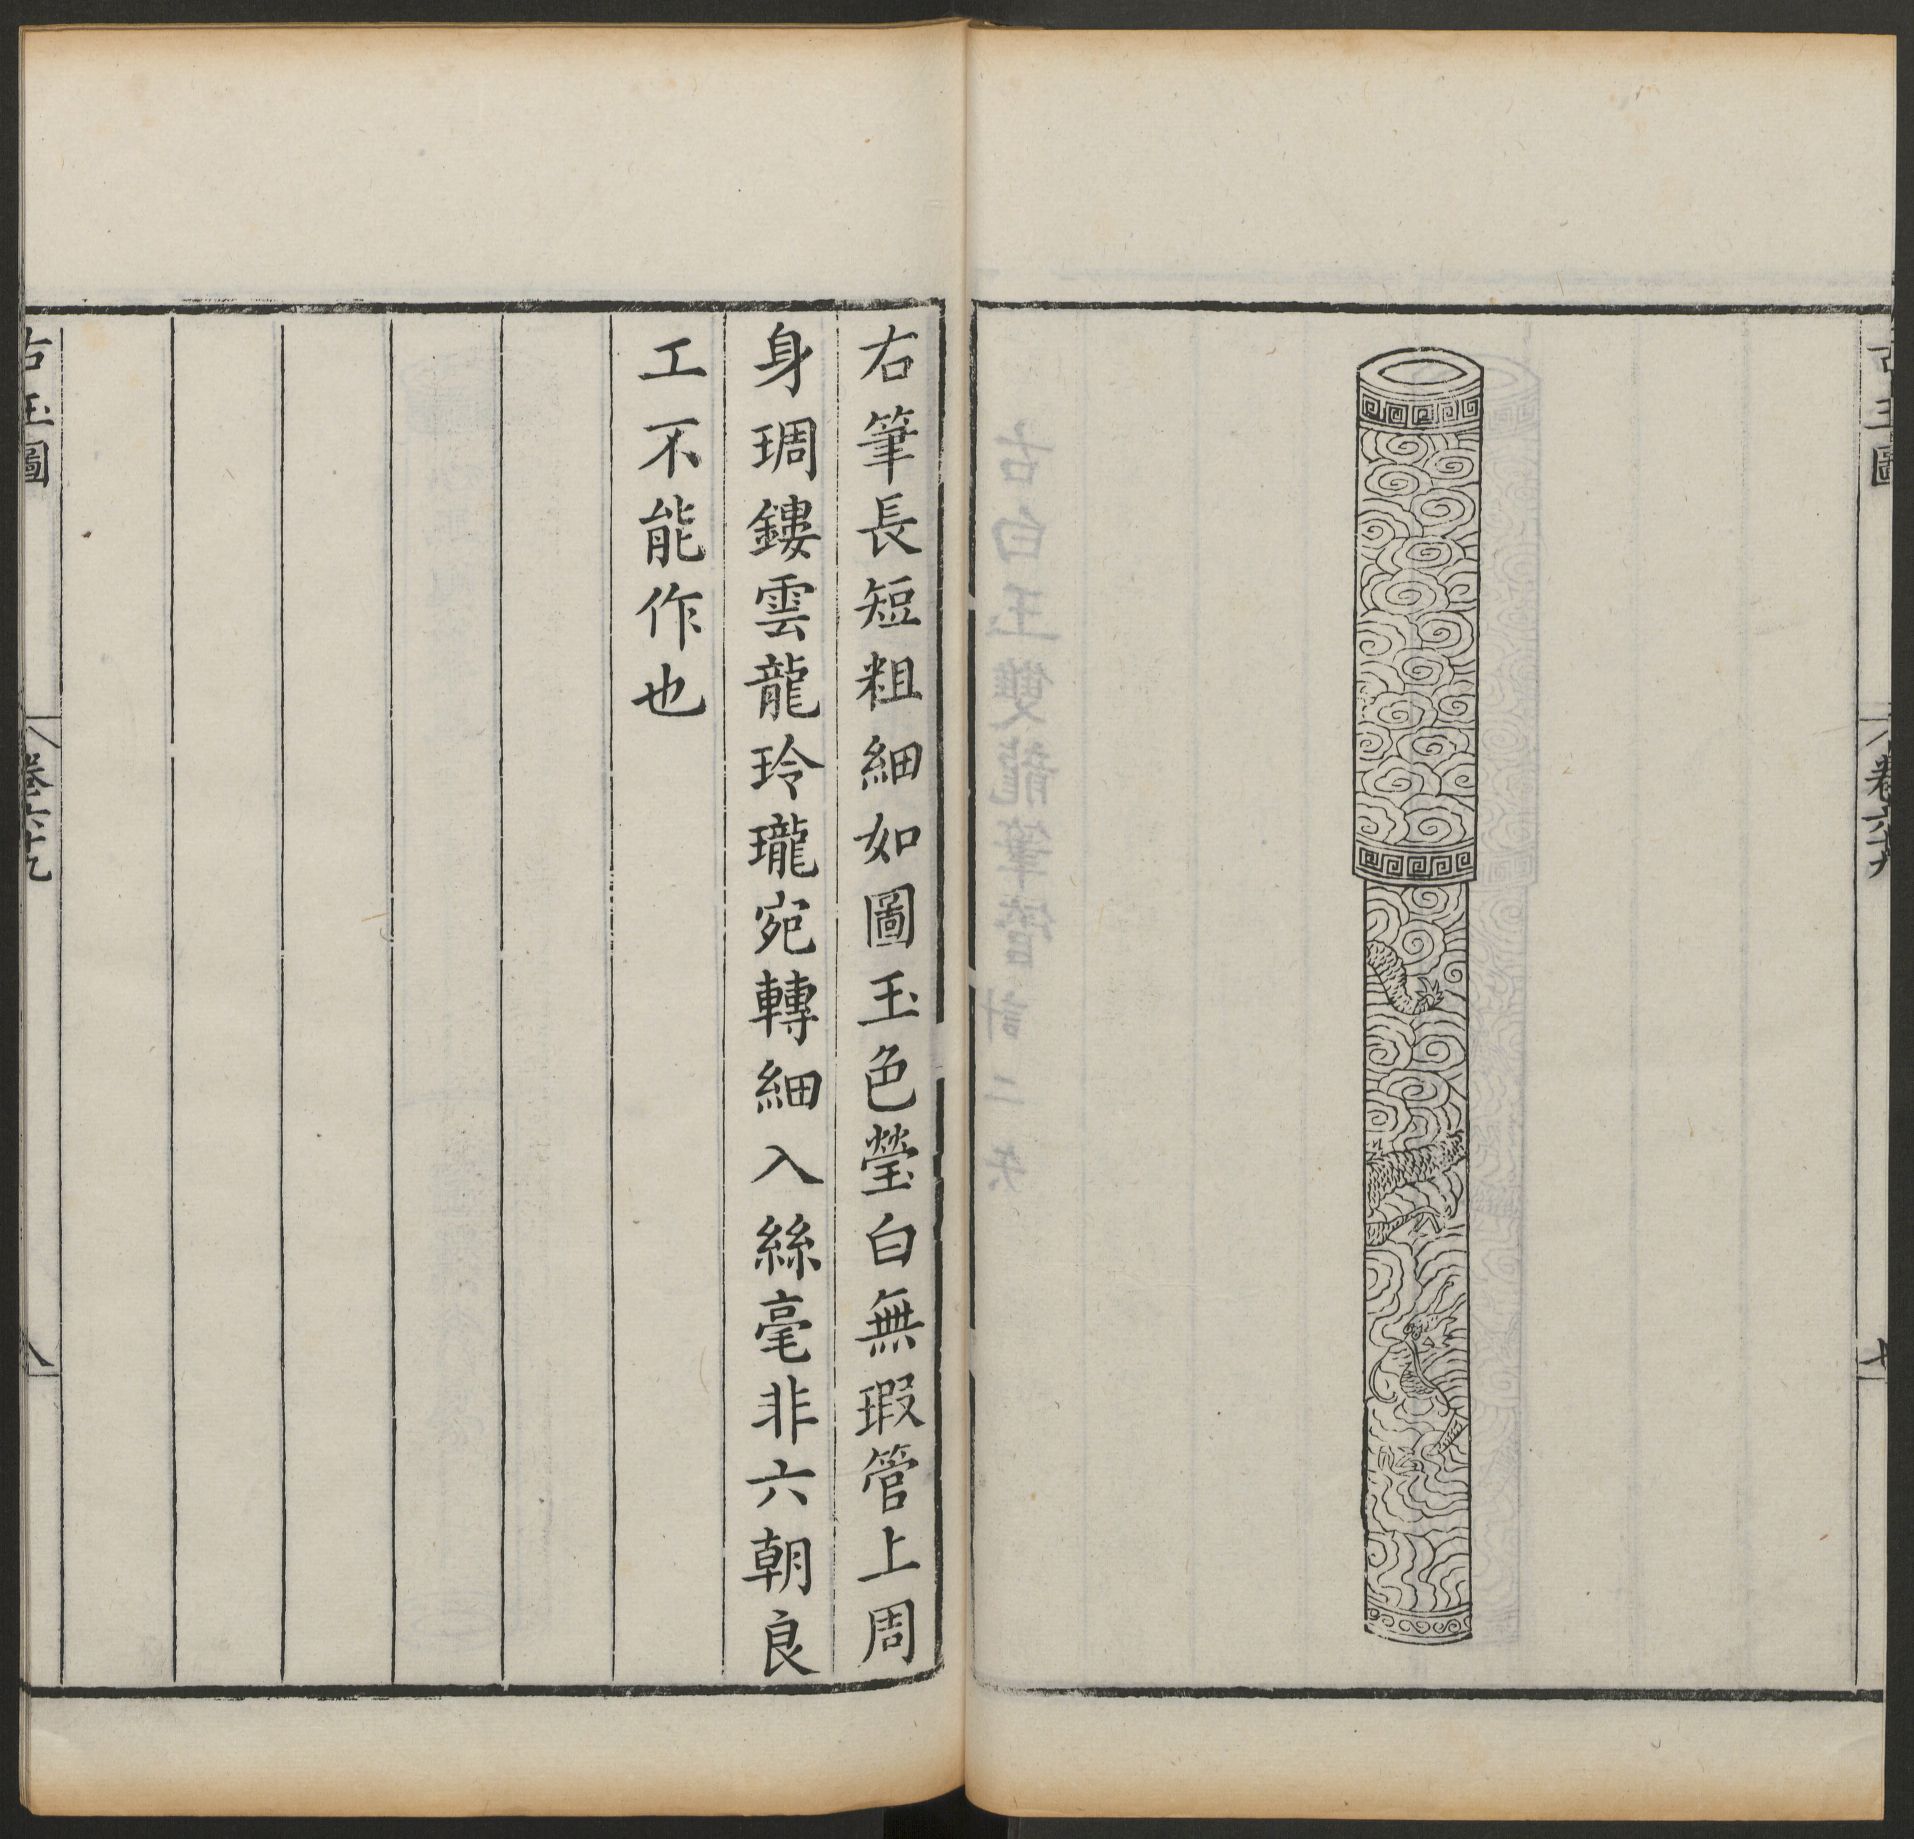 古玉圖
卷六十九
七
右筆長短粗細如圖玉色瑩白無瑕管上周
身琱鏤雲龍玲瓏宛轉細入絲毫非六朝良
工不能作也
古玉圖
卷六十九
八